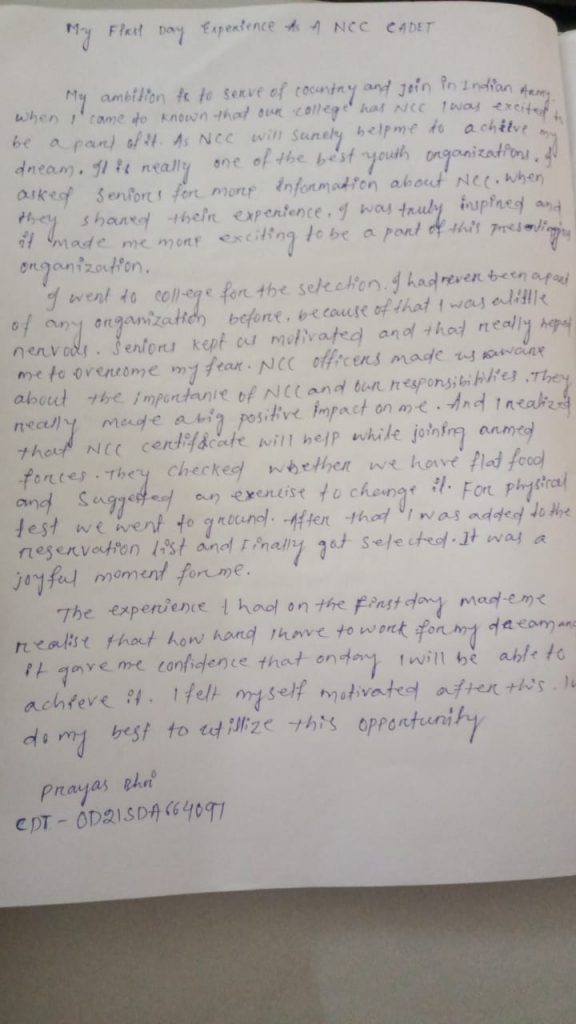 My First Day Experience As A NCC CADET
My ambition is to serve of country and join in Indian Army.
When I came to known that our college has NCC I was excited to
be a part of it. As NCC will surely helpme to achieve my
dream. It is really one of the best youth organizations. I
asked Seniors for more Information about NCC. When
they shared their experience. I was truly inspired and
it made me more exciting to be a part of this
organization.
I went to college for the selection. I had never been a part
of any organization before. because of that I was alittle
nervous. Seniors kept us motivated and that really
me to overcome my fear. NCC officers made us aware
about the importance of NCC and our responsibitities. They
really made a big positive impact on me. And I realized
that NCC certificate will help while joining armed
forces. They checked whether we have flat food
and Suggested an exercise to change it. For physical
test we went to ground. After that I was added to the
reservation list and finally got selected. It was a
joyful moment for me.
The experience I had on the first day made me
realise that how hard I have to work for my dream and
it gave me confidence that onday I will be able to
achieve it. I felt myself motivated after this.
do my best to utillize this opportunity
Prayas Bhri
CDT - OD21SDA664097